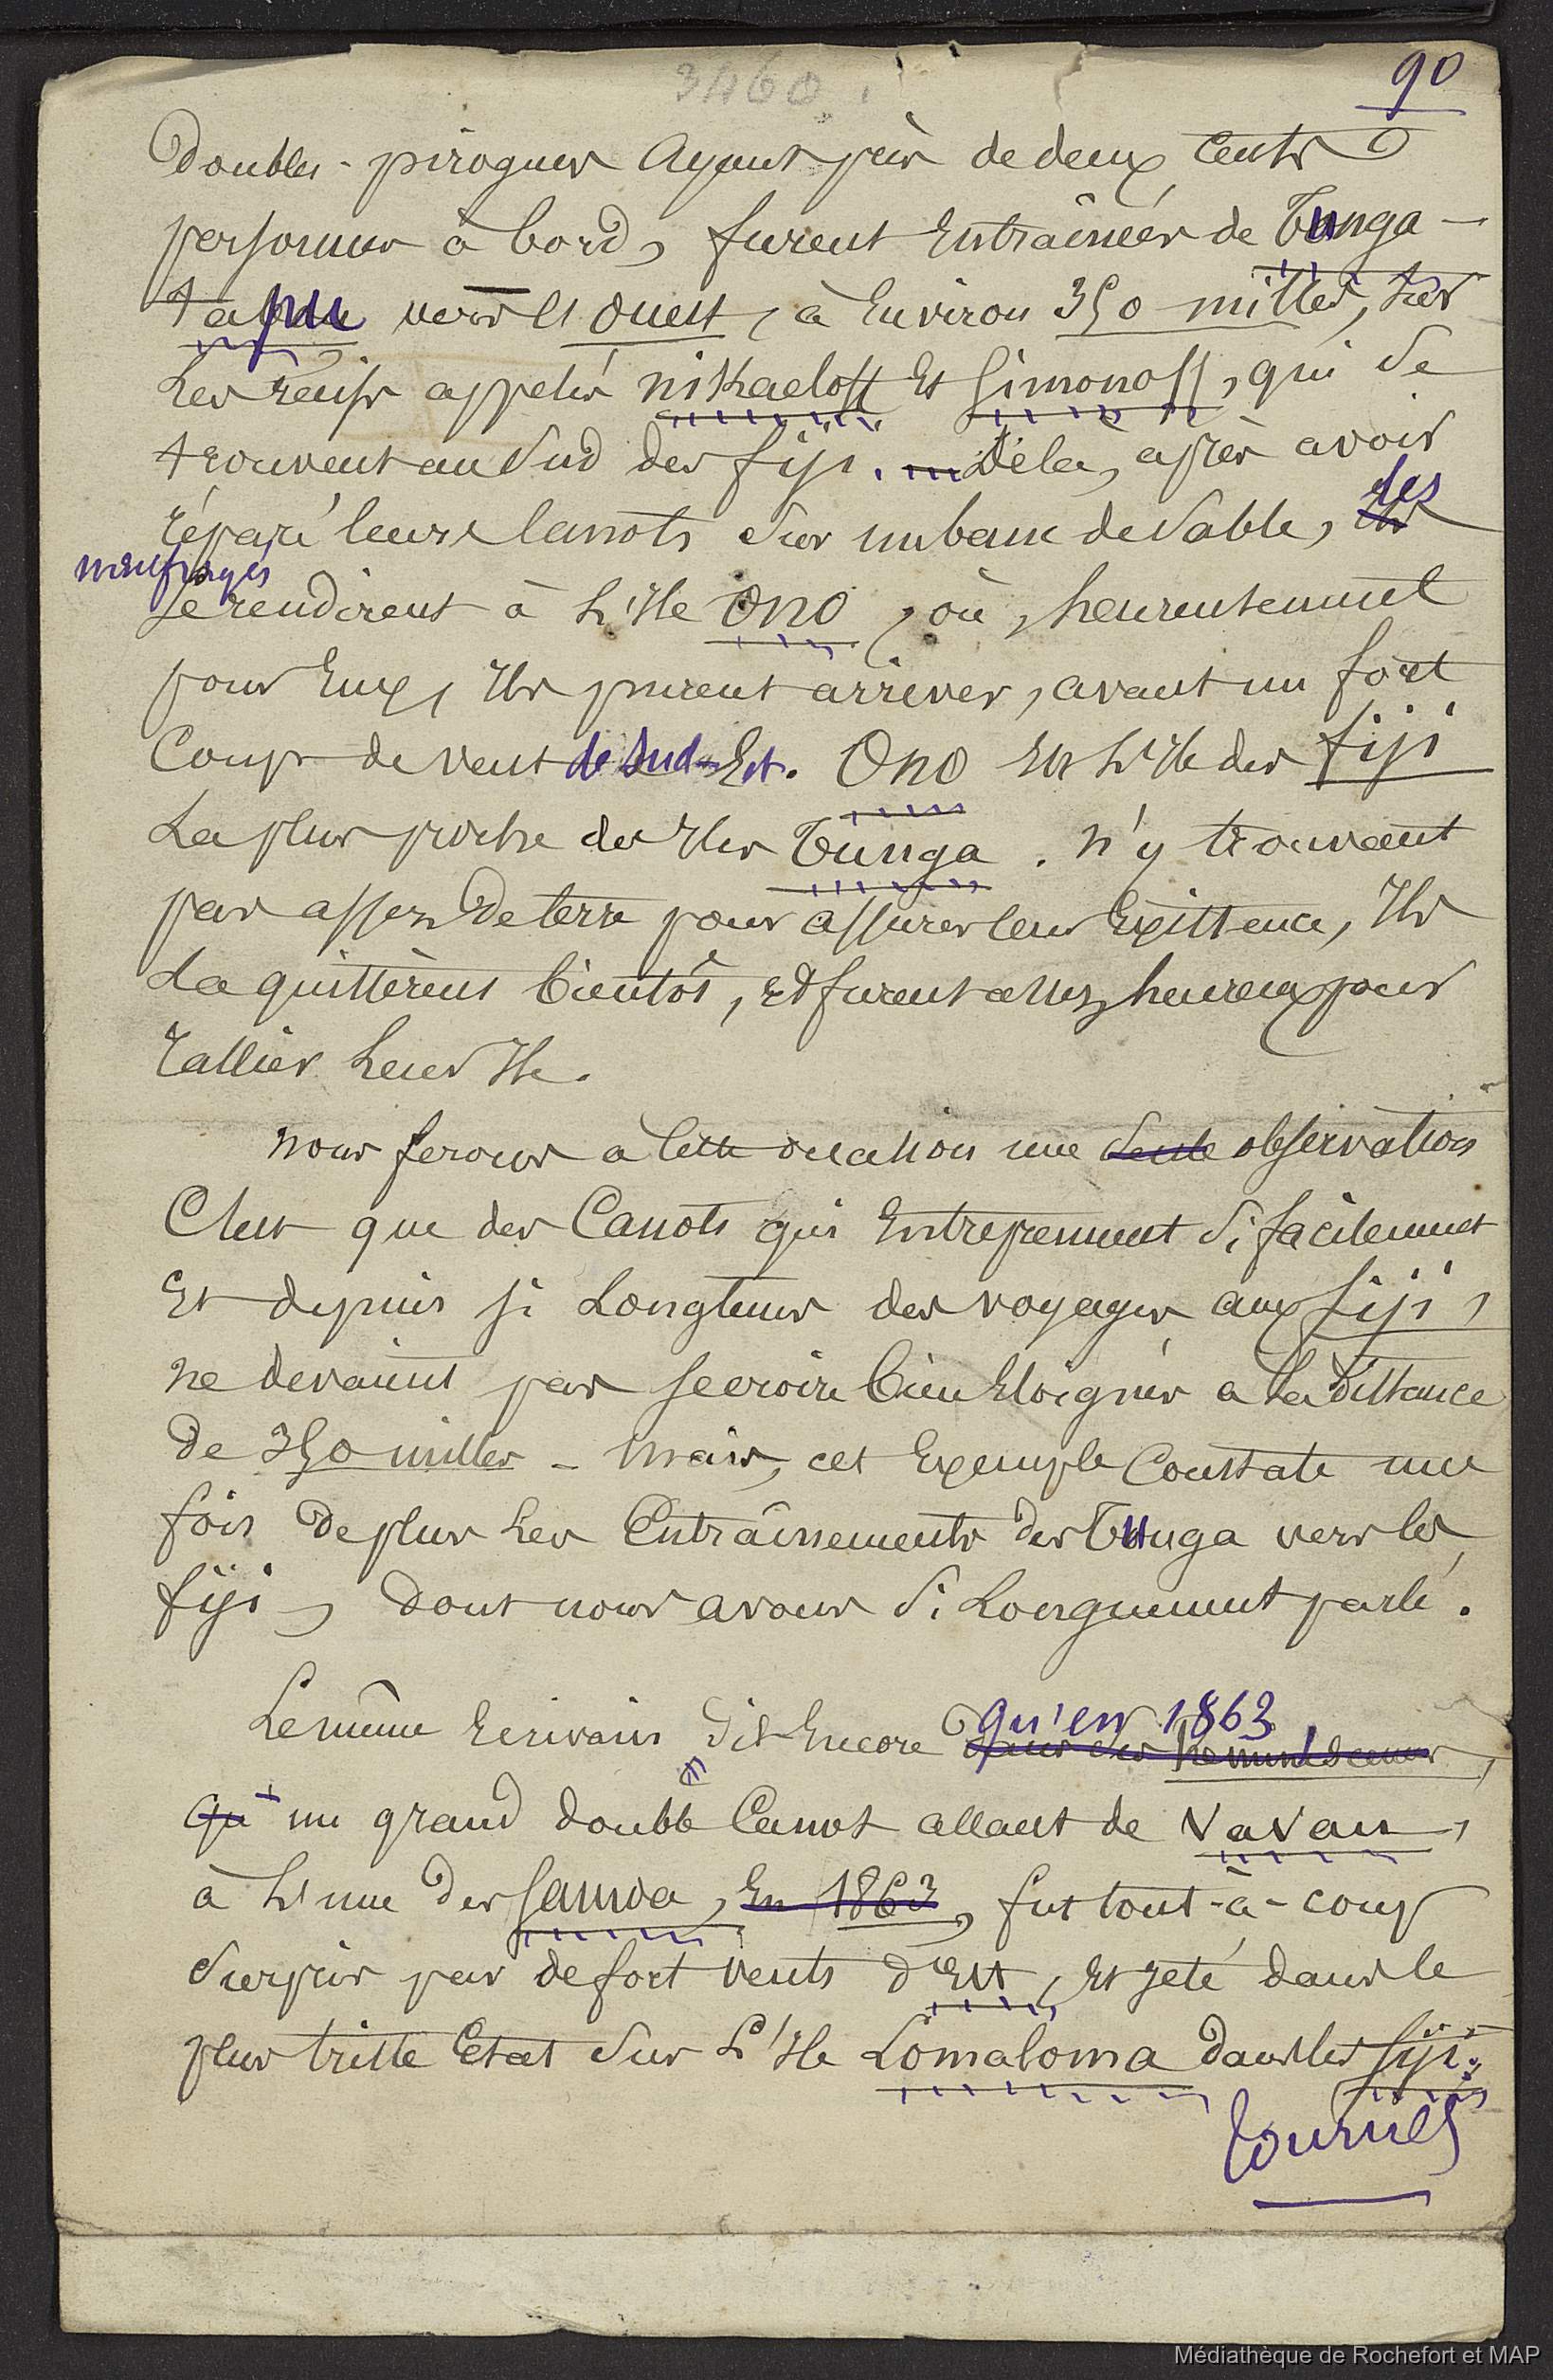 3460.
90
Doubles-pirogues ayant près de deux cents
personnes à bord, furent Entraînées de Tunga-
tapu vers l'ouest, à Environ 350 milles, sur
Les récifs appelés nikaeloff Et Simonoff, qui se
trouvent au Sud des fiji. Delà, après avoir
réparé leurs Canots sur un banc de Sable, Ils les
naufragés
se rendirent à L'Ile Ono, où, heureusement
pour Eux, Ils purent arriver, avant un fort
Coup de vent de sud-Est. Ono Est L'Ile des fiji
La plus proche des Iles Tunga. n'y trouvant
pas assez De terre pour assurer leur Existence, Ils
La quittèrent bientôt, Et furent assez heureux pour
rallier Leur Ile.
nous ferons a Cette occasion une Seule observation
C'est que des Canots qui Entreprennent Si facilement
Et depuis si Longtems des voyages aux fiji,
ne devaient pas se croire bien Eloignés a La Distance
De 350 milles - Mais, cet Exemple Constate une
fois De plus Les Entraînements des Tunga vers les
fiji, Dont nous avons Si Longuement parlé.
Le même Ecrivain Dit Encore qu'en 1863
qu'un grand double Canot allant de Vavau,
à L'une des Samoa, En 1863, fut tout-à-coup
Surpris par de fort vents d'Est, Et jeté dans le
plus triste Etat Sur L'Ile Lomaloma Dans les fiji.
Tournez
Médiathèque de Rochefort et MAP